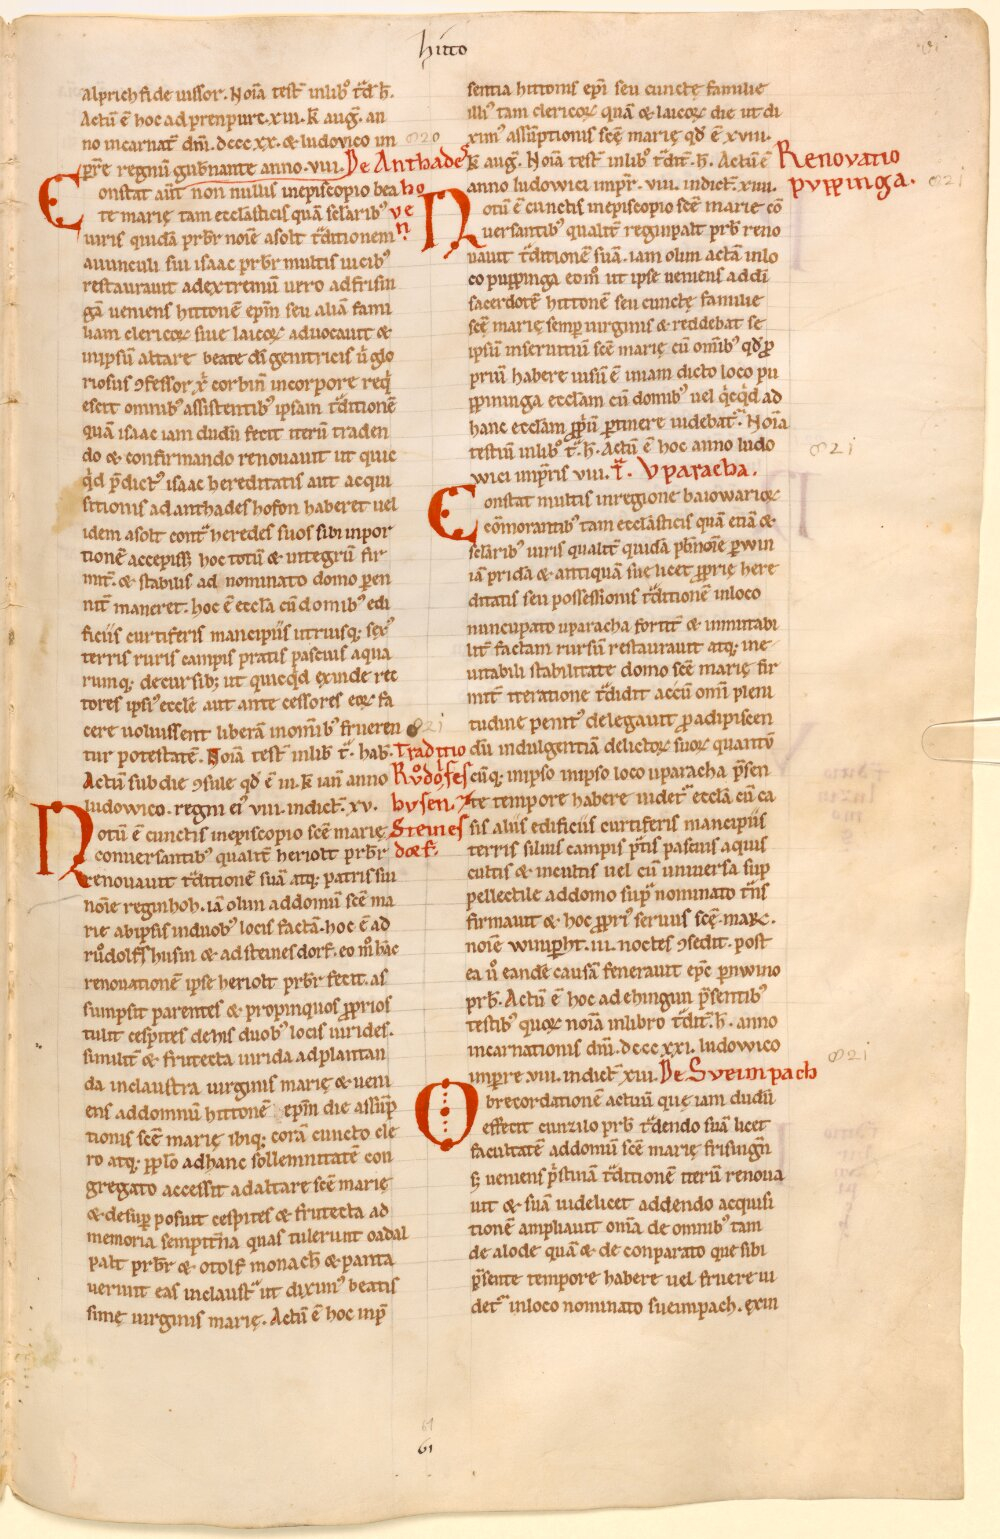 hitto
alprich fide uissor. Noia test inlib' td h.
Actu e hoc ad prenpurc. xiii. k aug. an
no incarnat dni. dccc xx. & ludouico im
pre regnu gubnante anno. viii. De Anthades
Constat aut non nullis inepiscopio bea ho
te marie tam ecclasticis qua sclarib' ve
uiris quida prbr noie asolt tditionem n
auunculi sui isaac prbr multis uicib'
restaurauit ad extremu uero ad frisin
ga ueniens hittone epm seu alia fami
liam clericoꝝ siue laicoꝝ aduocauit &
inipsu altare beate di genitricis u glo
riosus ꝯfessor x corbin incorpore req
escit omnib' assistentib' ipsam tditione
qua isaac iam dudu fecit iteru traden
do & confirmando renouauit ut quic
qd pdict' isaac hereditatis aut acqui
sitionis ad anthades hofon haberet uel
idem asolt cont heredes suos sibi inpor
tione accepiss hoc totu & integru fir
mit. & stabilis ad nominato domo pen
nit maneret. hoc e eccla cu domib' edi
ficiis curtiferis mancipiis utriusq; sex'
terris ruris campis pratis pascuis aqua
rumq; decursib; ut quicqd exinde rec
tores ipsi' eccle aut ante cessores eoꝝ fa
cere uoluissent libera inomib' frueren
tur potestate. Noia test inlib t. hab. Traditio
Actu sub die ꝯsule qd e iii. k ian anno Rudolfes
ludowico. regni ei' viii. indict. xv. husen. &
Notu e cunctis inepiscopio sce marie Steines
conuersantib' qualit heriolt prbr dorf.
renouauit tditione sua atq; patris sui
noie reginhoh. ia olim addomu sce ma
rie abipsis induob' locis facta. hoc e ad
rudolfshusin & ad steines dorf. eo m hac
renouatione ipse heriolt prbr fecit. as
sumpsit parentes & propinquos pprios
tulit cespites dehis duob' locis uirides.
similit & frutecta uirida adplantan
da inclaustra uirginis marie & ueni
ens addomnu hittone epm die assup
tionis sce marie ibiq; cora cuncto cle
ro atq; pplo adhanc sollemnitate con
gregato accessit adaltare sce marie
& desup posuit cespites & frutecta ad
memoria sempitna quas tulerunt oadal
palt prbr & otolf monach & panta
uerunt eas inclaust ut diximus beatis
sime uirginis marie. Actu e hoc inp
sentia hittonis epi seu cuncte familie
illi' tam clericoꝝ qua & laicoꝝ die ut di
xim' assuptionis sce marie qd e xviii.
k aug. Noia test inlib' tdit. h. Actu e Renovatio
anno ludowici impr. viii. indict. xiiii. pvppinga.
Notu e cunctis inepiscopio sce marie co
uersantib' qualit reginpalt prb reno
uauit tditione sua. iam olim acta inlo
co puppinga eom ut ipse ueniens ad di
sacerdote hittone seu cuncte familie
sce marie semp uirginis & reddebat se
ipsu inseruitiu sce marie cu omib' qd p
priu habere uisu e iniam dicto loco pu
ppininga ecclam cu domib' uel qcqd ad
hanc ecclam ppiu ptinere uidebat. Noia
testiu inlib' t. h. Actu e hoc anno ludo
wici impris viii. t. Vparacha.
Constat multis inregione baiowarioꝝ
comorantib' tam ecclasticis qua etia &
sclarib' uiris qualit quida pbr noie pwin
ia prida & antiqua sue licet pprie here
ditatis seu possessionis tditione inloco
nuncupato uparacha fortit & inmutabi
lit factam rursu restaurauit atq; ine
uitabili stabilitate domo sce marie fir
mit iteratione tdidit accu omi pleni
tudine penit' delegauit p adipiscen
du indulgentia delictoꝝ suoꝝ quantu
cuq; inipso inipso loco uparacha psen
te tempore habere uidet eccla cu ca
sis aliis edificiis curtiferis mancipiis
terris siluis campis ptis pascuis aquis
cultis & incultis uel cu uniuersa sup
pellectile addomo sup nominato tns
firmauit & hoc ppri' seruus sce mar.
noie winipht. iii. noctes ꝯsedit. post
ea u eande causa fenerauit epc pnwino
prb. Actu e hoc ad ehingun psentib'
testib' quoꝝ noia inlibro tdit. h. anno
incarnationis dni. dccc xxi. ludowico
impre. viii. indict xiii. De Sveimpach
Ob recordatione actuu que iam dudu
effecit cunzilo prb tdendo sua licet
facultate addomu sce marie frisingn
s; ueniens pstina tditione iteru renoua
uit & sua uidelicet addendo acquisi
tione ampliauit omia de omnib' tam
de alode qua & de conparato que sibi
psente tempore habere uel fruere ui
det inloco nominato sueimpach. exin
820
821
821
821
821
61
61